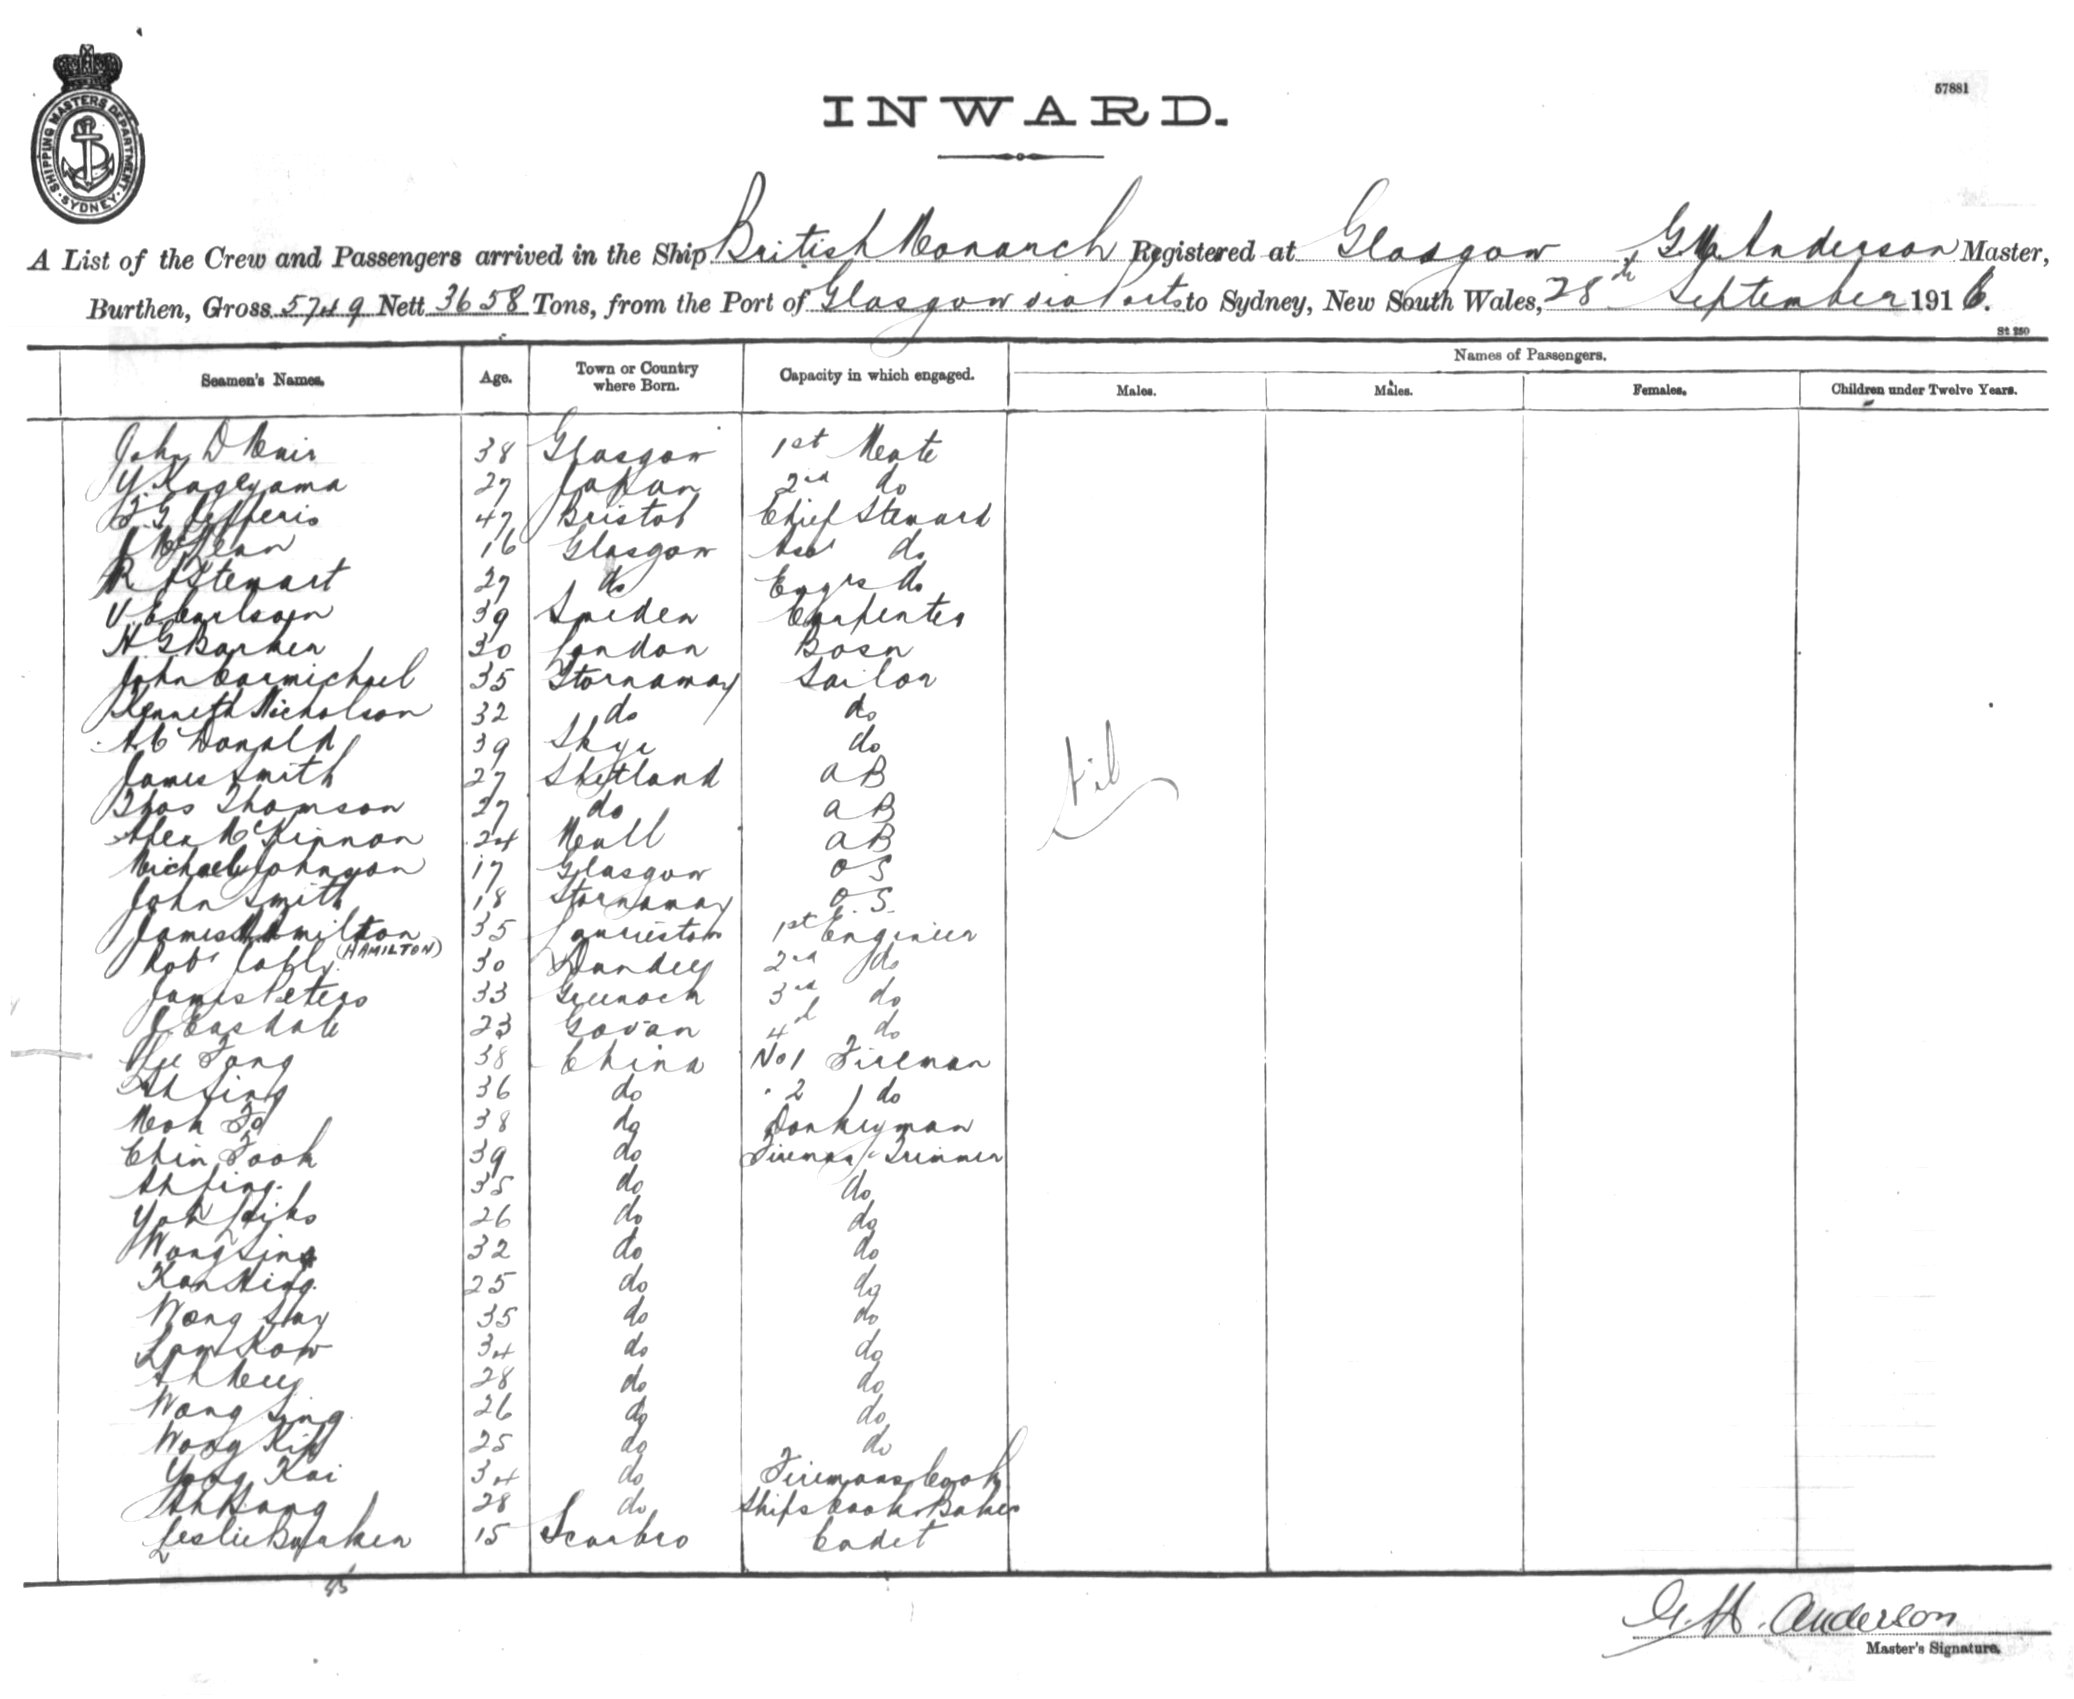 57881
SHIPPING MASTERS DEPARTMENT · SYDNEY ·
INWARD.
A List of the Crew and Passengers arrived in the Ship British Monarch Registered at Glasgow G. M. Anderson Master,
Burthen, Gross 5749 Nett 3658 Tons, from the Port of Glasgow via Ports to Sydney, New South Wales, 28th September 1916.
St 250
Seamen's Names. Age. Town or Country where Born. Capacity in which engaged. Names of Passengers.
Males. Males. Females. Children under Twelve Years.
John D Muir 38 Glasgow 1st Mate
Y Kageyama 27 Japan 2nd do
Jefferis 47 Bristol Chief Steward
J McLean 16 Glasgow Asst do
R J Stewart 27 do Engrs do
V. E Carlson 39 Sweden Carpenter
H G Barker 30 London Bosn
John Carmichael 35 Stornaway Sailor
Kenneth Nicholson 32 do do
Donald 39 Skye do
James Smith 27 Shetland AB
Thos Thomson 27 do AB
Alex McKinnon 24 Mull AB
Michael Johnson 17 Glasgow OS
John Smith 18 Stornaway O.S.
James Hamilton 35 Laurieston 1st Engineer
(HAMILTON)
Robt 30 Dundee 2nd do
James Peters 33 Greenock 3rd do
J. Easdale 23 Govan 4th do
Fong 38 China No 1 Fireman
Ah Sing 36 do 2 do
38 do Donkeyman
Chin Fook 39 do Fireman & Trimmer
Ah 35 do do
Yok 26 do do
Wong Sing 32 do do
Kan 25 do do
Wong 35 do do
Lam Kow 34 do do
Ah 28 do do
Wong 26 do do
Wong Kip 25 do do
Yong Kai 34 do Firemans Cook
Ah 28 do Ships Cook & Baker
Leslie Barker 15 Scarbro Cadet
Nil
35
G. M. Anderson
Master's Signature.